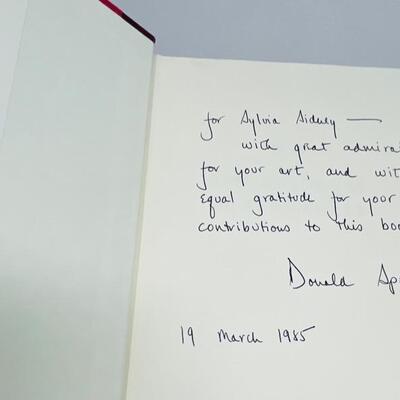 for Sylvia Sidney —
with great admirat
for your art, and wit
equal gratitude for your
contributions to this boo
Donald Sp
19 March 1985